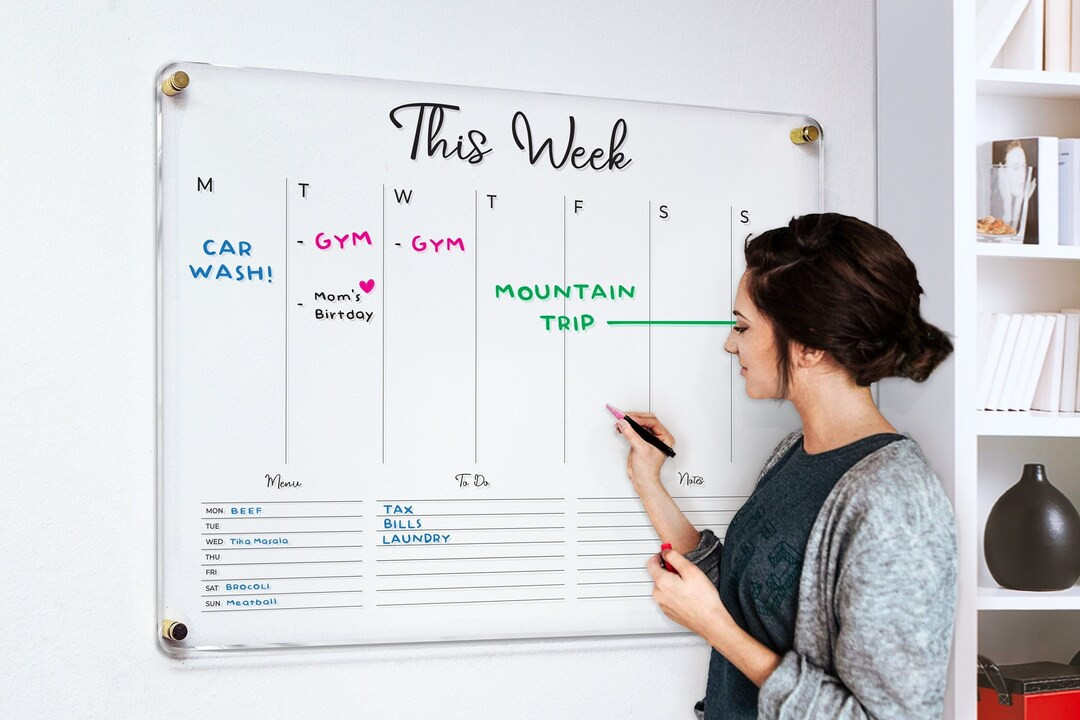 This Week
M T W T F S S
CAR
WASH!
- GYM
- Mom's
Birtday
- GYM
MOUNTAIN
TRIP
Menu
MON BEEF
TUE
WED Tika Masala
THU
FRI
SAT BROCOLI
SUN Meatball
To Do
TAX
BILLS
LAUNDRY
Notes